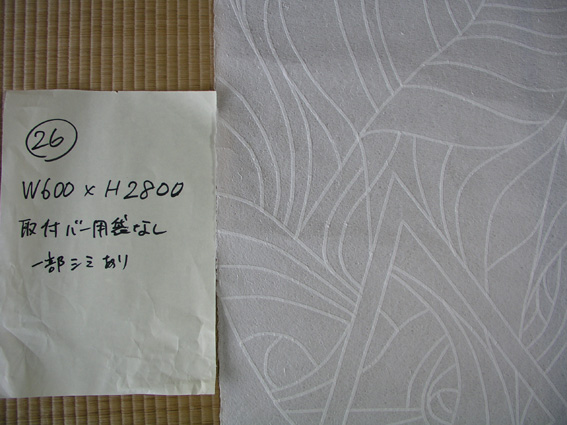 26
W600 × H2800
取付バー用袋なし
一部シミあり